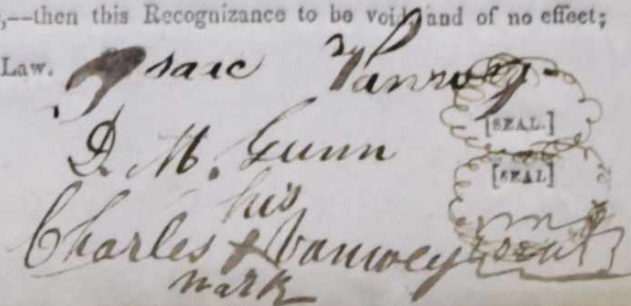 ,—then this Recognizance to be void, and of no effect;
Law.
Isaic Vanwey [SEAL.]
D. M. Gunn [SEAL]
his
Charles + Vanwey seal
mark